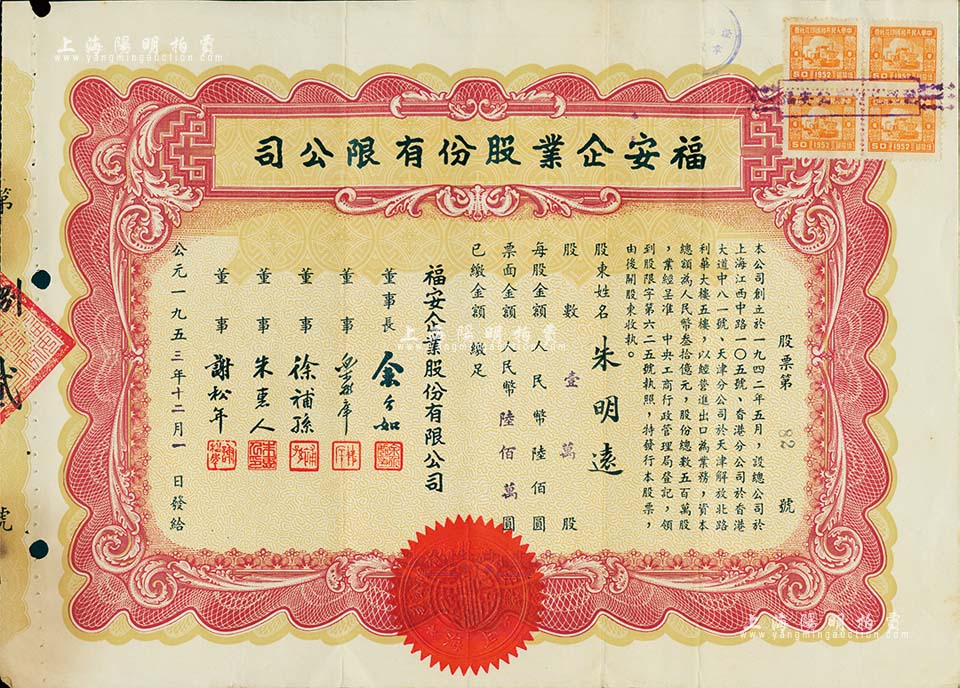 上海陽明拍賣
www.yangmingauction.com
中華人民共和國印花稅票
50 1952
50 1952
50 1952
50 1952
福安企業股份有限公司
股票第 82 號
本公司創立於一九四二年五月，設總公司於
上海江西中路一〇五號、香港分公司於香港
大道中八一號、天津分公司於天津解放北路
利華大樓五樓，以經營進出口為業務，資本
總額為人民幣叁拾億元，股份總數五百萬股
，業經呈准 中央工商行政管理局登記，領
到股限字第六二五號執照，特發行本股票，
由後開股東收執。
股東姓名 朱明遠
股數 壹萬 股
每股金額 人民幣陸佰圓
票面金額 人民幣陸佰萬圓
已繳金額 繳足
福安企業股份有限公司
董事長
董事
董事 徐補孫
董事 朱惠人
董事 謝松年
公元一九五三年十二月一日發給
第 捌貳 號
上海陽明拍賣
www.yangmingauction.com
上海陽明拍賣
www.yangmingauction.com